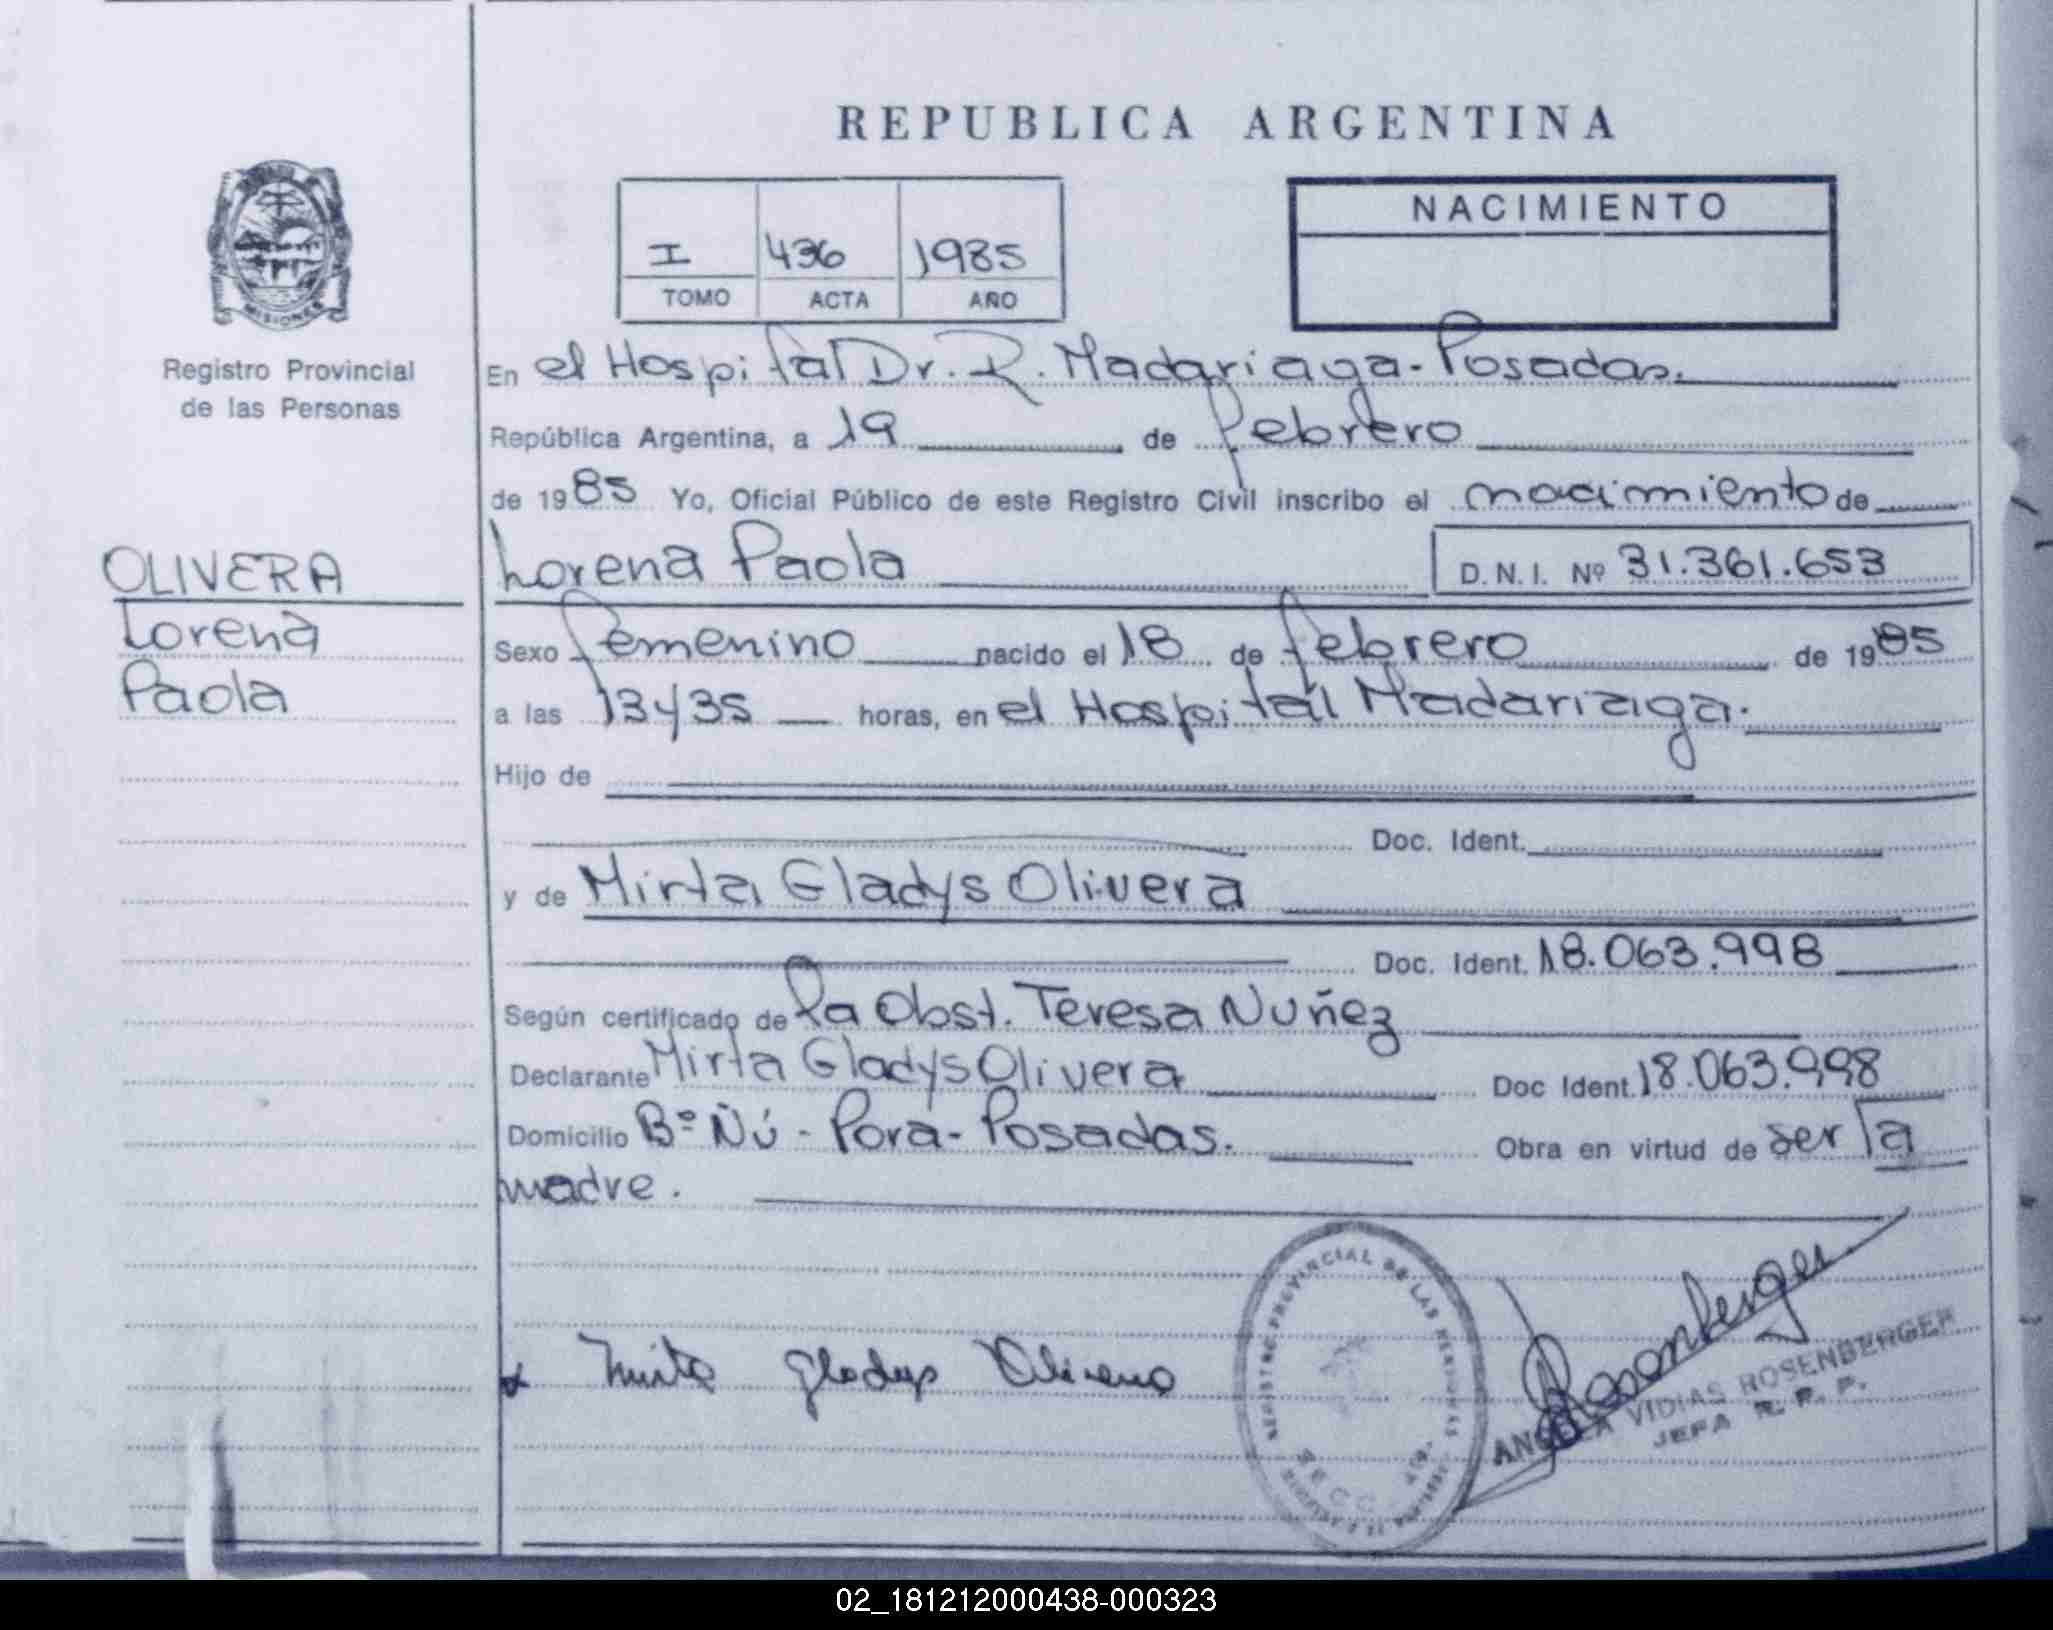 REPUBLICA ARGENTINA
MISIONES
Registro Provincial
de las Personas
I 436 1985
TOMO ACTA AÑO
NACIMIENTO
En el Hospital Dr. R. Madariaga - Posadas.
República Argentina, a 19 de febrero
de 1985 Yo, Oficial Público de este Registro Civil inscribo el nacimiento de
OLIVERA
Lorena
Paola
Lorena Paola D.N.I. Nº 31.361.653
Sexo femenino nacido el 18 de febrero de 1985
a las 13 y 35 horas, en el Hospital Madariaga.
Hijo de
Doc. Ident.
y de Mirta Gladys Olivera
Doc. Ident. 18.063.998
Según certificado de la Obst. Teresa Nuñez
Declarante Mirta Gladys Olivera Doc Ident. 18.063.998
Domicilio Bº Ñú - Pora - Posadas. Obra en virtud de ser la
madre.
Mirta Gladys Olivera
REGISTRO PROVINCIAL DE LAS PERSONAS
SECC.
Rosenberger
ANGELA VIDIAS ROSENBERGER
JEFA R. P. P.
02_181212000438-000323